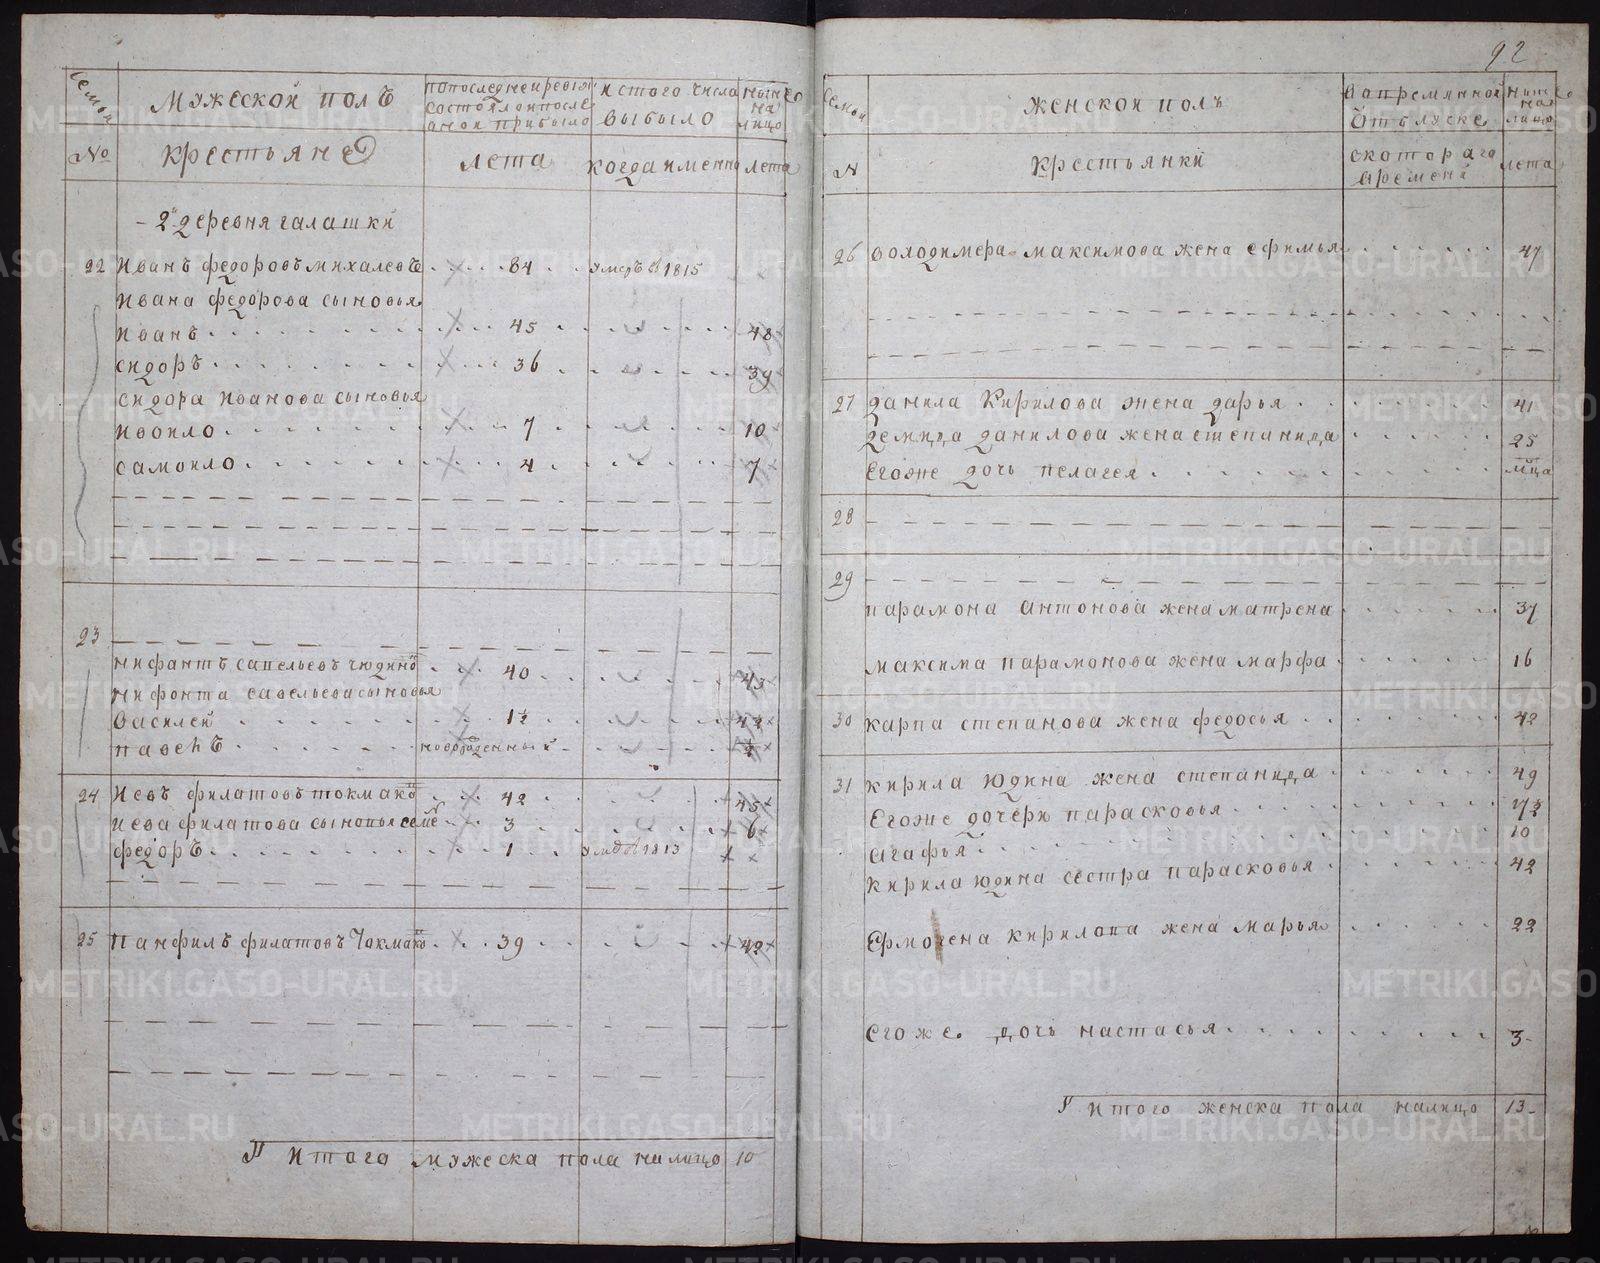 92
Семьи
Мужеской полъ
попоследнейревизи
состоялоипосле
аной прибыло
истого числа
выбыло
ныне
на
лицо
№
крестьяне
лета
когдаименно
лета
2 деревня галашки
22 Иванъ федоровъ михалевъ 84 умеръ в 1815
Ивана федорова сыновья
Иванъ 45 48
сидоръ 36 39
сидора иванова сыновья
ивоило 7 10
самоило 4 7
23
нифантъ савельевъ чюдинъ 40 43
нифонта савельева сыновья
Василей 1½
павелъ новорожденный
24 Иевъ филатовъ токмаковъ 42 45
иева филатова сыновья 3 6
федоръ 1 1813
25 Панфилъ филатовъ 39 42
Итого мужеска пола налицо 10
Семьи
женской полъ
вопременной
отълуске
ныне
на
лицо
N
крестьянки
скотораго
времени
лета
26 володимера максимова жена ефимья 47
27 данила Кирилова жена дарья 41
демида данилова жена степанида 25
Егоже дочь пелагея мца
28
29
парамона антонова жена матрена 37
максима парамонова жена марфа 16
30 карпа степанова жена федосья 42
31 кирила юдина жена степанида 49
Егоже дочери парасковья
агафья 10
кирила юдина сестра парасковья 42
Ермолена кирилова жена марья 22
Егоже дочь настасья 3
Итого женска пола налицо 13
METRIKI.GASO-URAL.RU